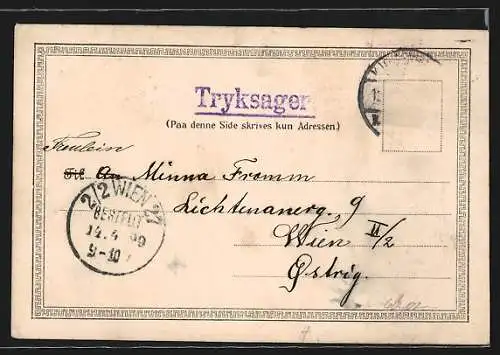 Tryksager
(Paa denne Side skrives kun Adressen.)
Fräulein
Til An Minna Fromm
Lichtenauerg. 9
Wien II/2
Østrig.
2/2 WIEN 27
BESTELLT
9-10